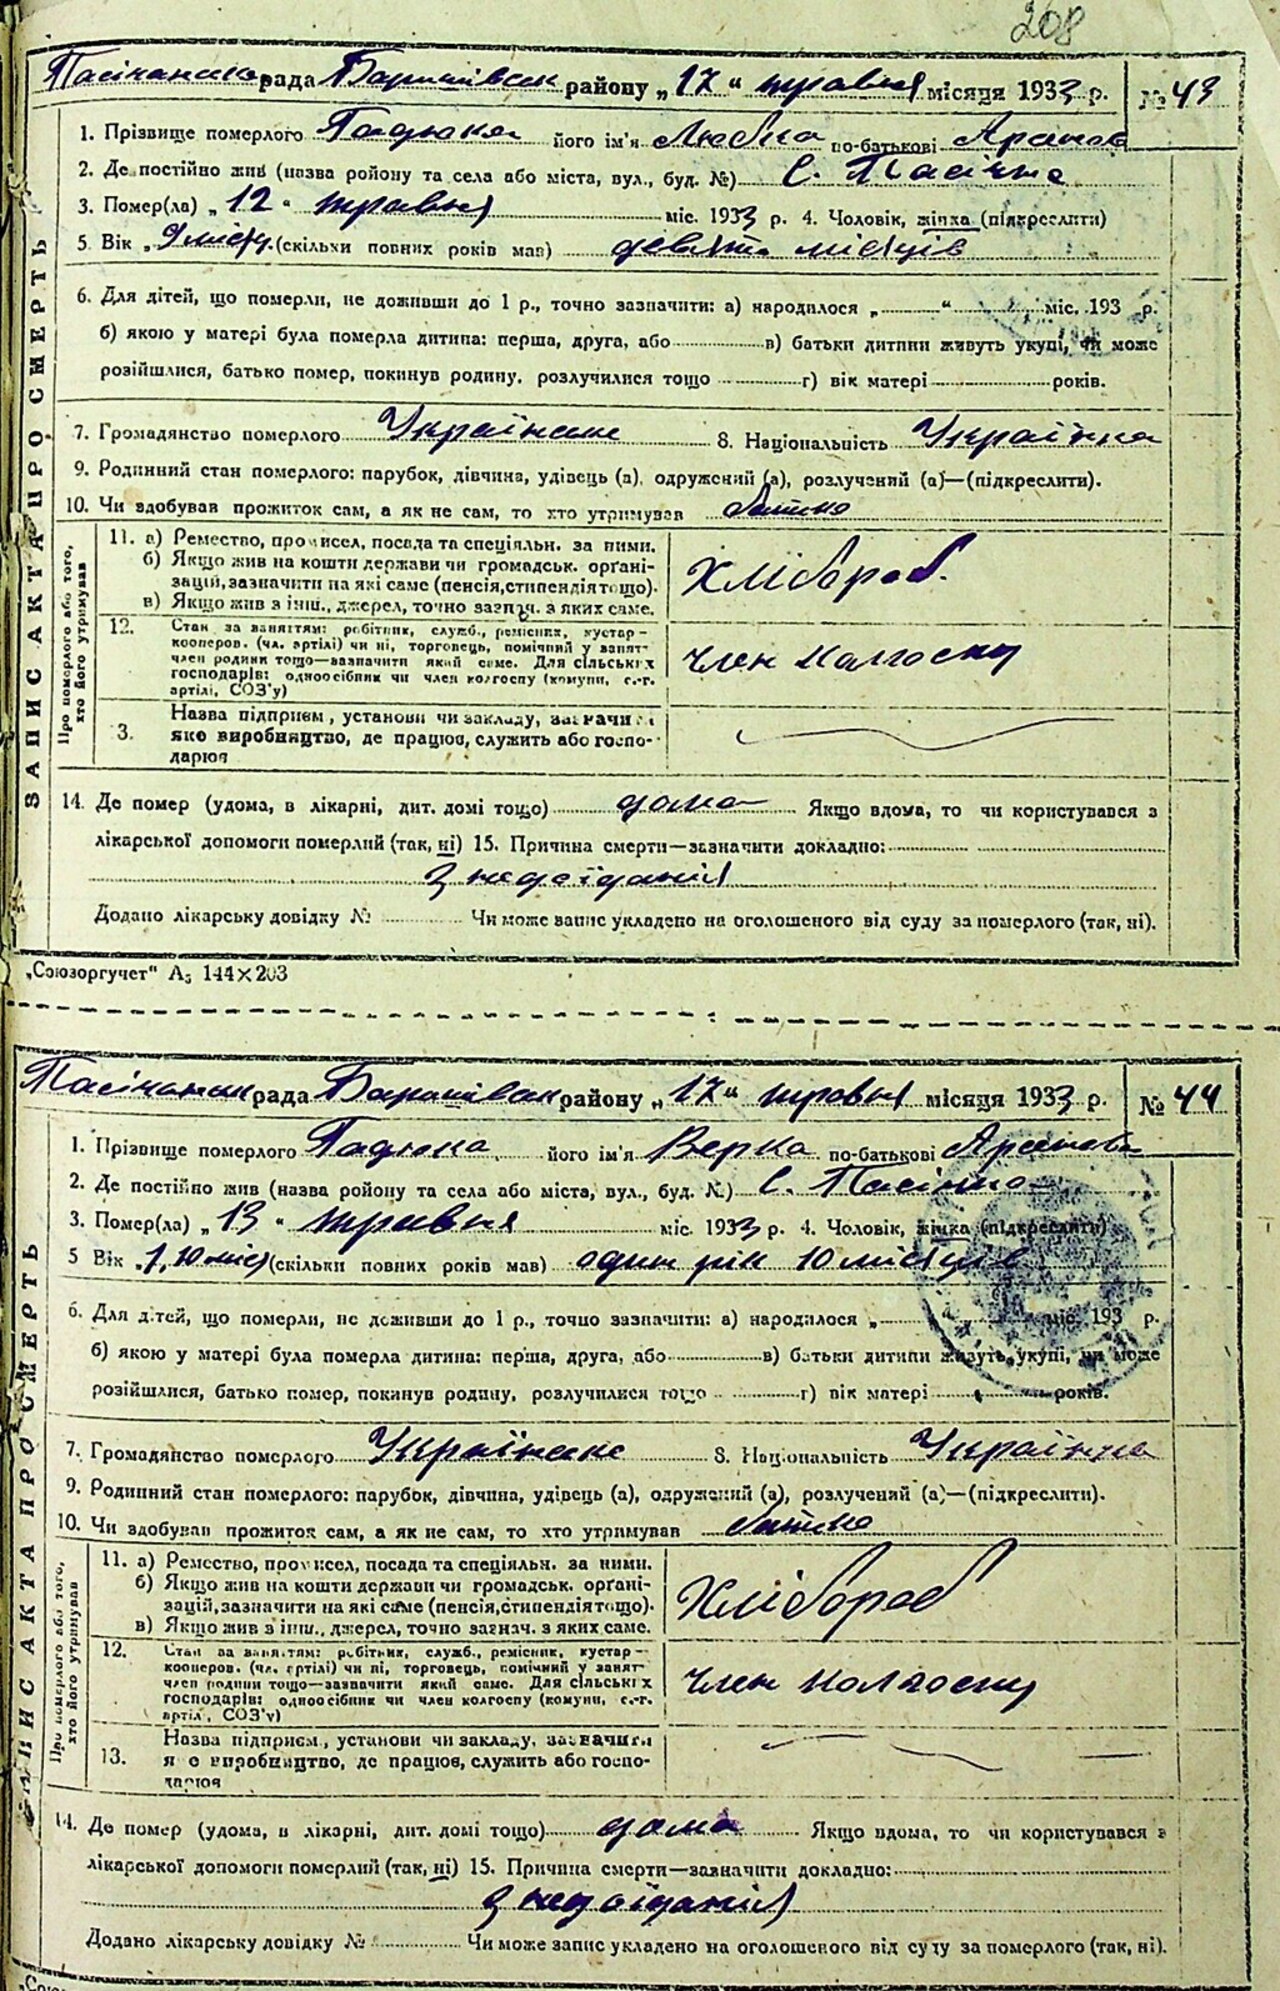 208
Пасічанськ рада Баришівськ району „17“ травня місяця 1933 р. № 43
1. Прізвище померлого Гадюка його ім'я Любка по-батькові
2. Де постійно жив (назва ройону та села або міста, вул., буд. №) С. Пасічна
3. Помер(ла) „12“ травня міс. 1933 р. 4. Чоловік, жінка (підкреслити)
5. Вік „9 місяц. (скільки повних років мав) девять місяців
6. Для дітей, що померли, не доживши до 1 р., точно зазначити: а) народилося „ “ міс. 193 р.
б) якою у матері була померла дитина: перша, друга, або в) батьки дитини живуть укупі, чи може
розійшлися, батько помер, покинув родину, розлучилися тощо г) вік матері років.
7. Громадянство померлого Українське 8. Національність Українка
9. Родинний стан померлого: парубок, дівчина, удівець (а), одружений (а), розлучений (а)—(підкреслити).
10. Чи здобував прожиток сам, а як не сам, то хто утримував батько
ЗАПИС АКТА ПРО СМЕРТЬ
Про померлого або того, хто його утримував
11. а) Ремество, промисел, посада та спеціяльн. за ними.
б) Якщо жив на кошти держави чи громадськ. органі-
зацій, зазначити на які саме (пенсія, стипендія тощо).
в) Якщо жив з інш., джерел, точно зазнач. з яких саме.
Хлібороб.
12. Стан за заняттям: робітник, служб., ремісник, кустар-
кооперов. (чл. артілі) чи ні, торговець, помічний у занят-
член родини тощо—зазначити який саме. Для сільських
господарів: одноосібник чи член колгоспу (комуни, с.-г.
артілі, СОЗ'у)
член колгоспу
3. Назва підприєм., установи чи закладу, зазначити
яке виробництво, де працює, служить або госпо-
дарює
14. Де помер (удома, в лікарні, дит. домі тощо) дома Якщо вдома, то чи користувався з
лікарської допомоги померлий (так, ні) 15. Причина смерти—зазначити докладно:
З недоїдання
Додано лікарську довідку № Чи може запис укладено на оголошеного від суду за померлого (так, ні).
„Союзоргучет“ А5 144×203
Пасічанськ рада Баришівськ району „17“ травня місяця 1933 р. № 44
1. Прізвище померлого Гадюка його ім'я Верка по-батькові
2. Де постійно жив (назва ройону та села або міста, вул., буд. №) С. Пасічна
3. Помер(ла) „13“ травня міс. 1933 р. 4. Чоловік, жінка (підкреслити)
5 Вік „1, 10 міс (скільки повних років мав) один рік 10 місяців
6. Для дітей, що померли, не доживши до 1 р., точно зазначити: а) народилося „ міс. 193 р.
б) якою у матері була померла дитина: перша, друга, або в) батьки дитини живуть укупі, чи може
розійшлися, батько помер, покинув родину, розлучилися тощо г) вік матері років.
7. Громадянство померлого Українське 8. Національність Українка
9. Родинний стан померлого: парубок, дівчина, удівець (а), одружений (а), розлучений (а)—(підкреслити).
10. Чи здобував прожиток сам, а як не сам, то хто утримував батько
ЗАПИС АКТА ПРО СМЕРТЬ
Про померлого або того, хто його утримував
11. а) Ремество, промисел, посада та спеціяльн. за ними.
б) Якщо жив на кошти держави чи громадськ. органі-
зацій, зазначити на які саме (пенсія, стипендія тощо).
в) Якщо жив з інш., джерел, точно зазнач. з яких саме.
Хлібороб
12. Стан за заняттям: робітник, служб., ремісник, кустар-
кооперов. (чл. артілі) чи ні, торговець, помічний у занят-
член родини тощо—зазначити який саме. Для сільських
господарів: одноосібник чи член колгоспу (комуни, с.-г.
артіл., СОЗ'у)
член колгоспу
13. Назва підприєм., установи чи закладу, зазначити
яке виробництво, де працює, служить або госпо-
дарює
14. Де помер (удома, в лікарні, дит. домі тощо) дома Якщо вдома, то чи користувався з
лікарської допомоги померлий (так, ні) 15. Причина смерти—зазначити докладно:
З недоїдання
Додано лікарську довідку № Чи може запис укладено на оголошеного від суду за померлого (так, ні).